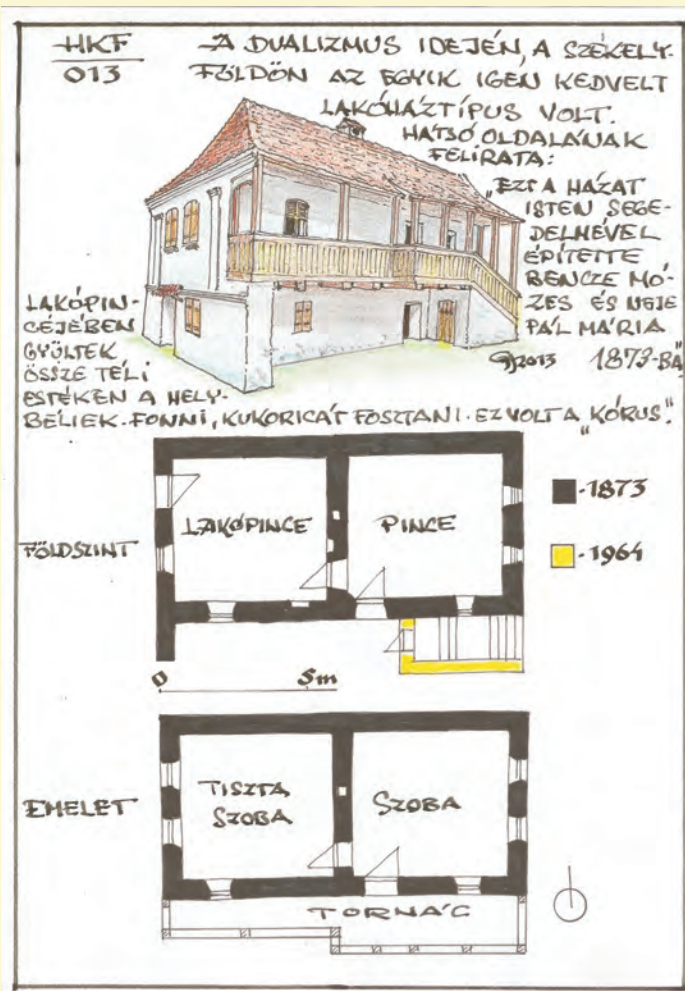 HKF
013
A DUALIZMUS IDEJÉN, A SZÉKELY-
FÖLDÖN AZ EGYIK IGEN KEDVELT
LAKÓHÁZTÍPUS VOLT.
HÁTSÓ OLDALÁNAK
FELIRATA:
„EZT A HÁZAT
ISTEN SEGE-
DELMÉVEL
ÉPÍTETTE
BENCZE MÓ-
ZES ÉS NEJE
PÁL MÁRIA
1873-BA
2013
LAKÓPIN-
CÉJÉBEN
GYŰLTEK
ÖSSZE TÉLI
ESTÉKEN A HELY-
BÉLIEK. FONNI, KUKORICÁT FOSZTANI. EZ VOLT A „KÓRUS".
FÖLDSZINT
LAKÓPINCE
PINCE
-1873
-1964
0 5m
EMELET
TISZTA
SZOBA
SZOBA
TORNÁC